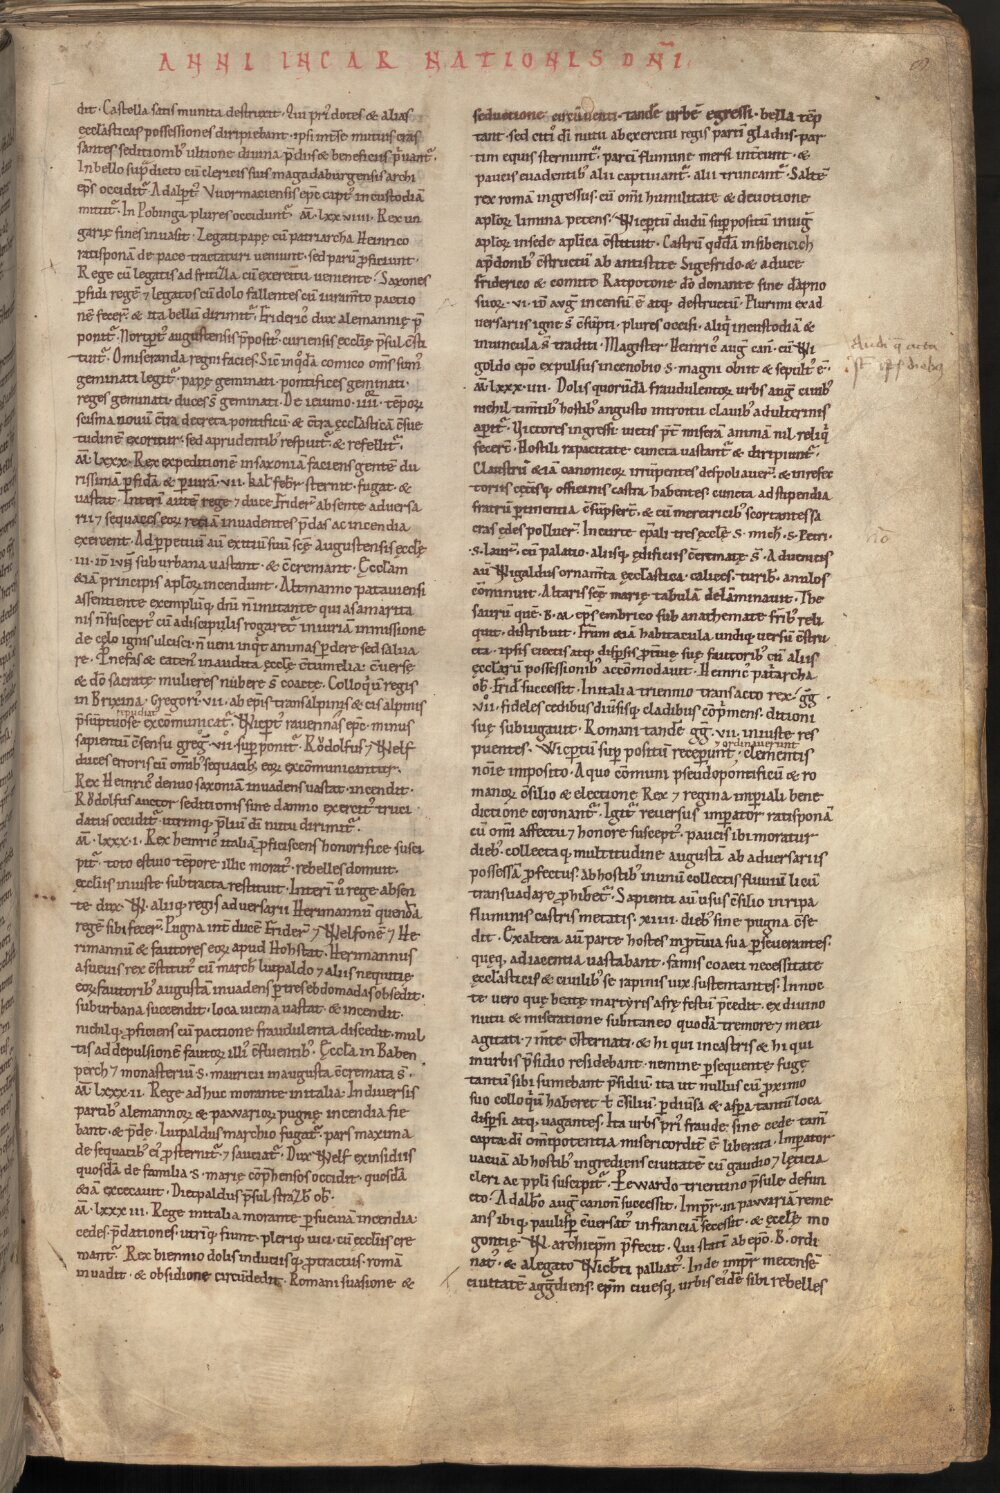 ANNI INCARNATIONIS DÑI
dit · Castella satis munita destruxit · Qui pri9 dotes & alias
ęcclasticas possessiones diripiebant · ipsi int̄se mutuis eras
santes seditionib9 ultione diuina p̄dis & beneficiis p̄uant᷑ ·
In bello sup̄dicto cū clericis suis magadaburgensis archi
ep̄s occidit᷑ · Adalpt9 Vuormaciensis ep̄c capt9 in custodiā
mittit᷑ · In Pobinga plures occidunt᷑ · āā · lxx viiii · Rex un
garię fines inuasit · Legati papę cū patriarcha Heinrico
ratisponā de pace tractaturi ueniunt · sed parū p̄ficiunt ·
Rege cū legatis ad fritizla cū exercitu ueniente · Saxones
p̄fidi regē ⁊ legatos cū dolo fallentes cū iuram̄to pactio
nē fecer̄ · & ita bellū dirimit᷑ · Frideric9 dux alemannię p̄
ponit᷑ · Nortpt9 augustensis p̄posit9 · curiensis ecclię p̄sul c̄sti
tuit᷑ · O miseranda regni facies · Sic̄ inq̇dā comico om̄s sum9
geminati legit᷑ · papę geminati · pontifices geminati ·
reges geminati · duces s̄ geminati · De ieiunio · iiii · tēpor̄
scisma nouū c̄tra decreta pontificū · & c̄tra ęcclasticā c̄sue
tudinē exoritur · sed a prudentib9 respuit᷑ · & refellit᷑ ·
āā · lxxx · Rex expeditionē in saxoniā faciens gentē du
rissimā p̄fidā & p̄iurā · vii · kal febr̄ sternit · fugat · &
uastat · Interī autē rege ⁊ duce Frider̄ absente aduersa
rii ⁊ sequaces eor̄ retiā inuadentes p̄das ac incendia
exercent · Ad p̄petuū aū exitiū suū scę̄ Augustensis ęcclę
iii · id̄ iun̄ suburbana uastant · & c̄cremant · Ęcclam
&iā principis aplor̄ incendunt · Altmanno patauiensi
assentiente exemplūq; dn̄i n̄ imitante qui a samarita
nis n̄ suscept9 cū a discipulis rogaret᷑ in iuriā inmissione
de cęlo ignis ulcisci · n̄ ueni inq̇t animas p̄dere sed salua
re · P̄ nefas & eaten9 inaudita ęcclę c̄tumelia · c̄uersę
& do̅ sacratę mulieres nubere s̄ coactę · Colloq̇ū regis
in Brixina · Gregori9 · vii · ab ep̄is transalpinis & cis alpinis
repudiat᷑
p̄sūptuose excōmunicat᷑ · Wicpt9 rauennas ep̄c · minus
sapientū c̄sensu greg̅ · vii̊ · sup̄ponit᷑ · Rŏdolfus ⁊ Welf
duces erroris cū omib9 sequacib9 eor̄ excōmunicantur ·
Rex Heinric9 denuo saxoniā inuadens uastat · incendit ·
Rŏdolfus auctor seditionis sine damno exercit9 truci
datus occidit᷑ · utrimq; p̄liū di̅ nutu dirimit᷑ ·
āā · lxxx · i · Rex heinric9 italiā p̄ficiscens honorifice susci
pit᷑ · toto estiuo tēpore illic morat᷑ · rebelles domuit ·
ecclīis iniuste subtracta restituit · Interī u̅ rege absen
te · dux · W · aliiq; regis aduersarii Herimannū quendā
regē sibi fecer̄ · Pugna int̄ ducē Frider̄ ⁊ Welfonē ⁊ He
rimannū & fautores eor̄ apud Hohstat · Herimannus
a sueuis rex c̄stitut9 cū march̄ luipaldo ⁊ aliis nequitię
eor̄ fautorib9 augustā inuadens p̄ tres ebdomadas obsedit ·
suburbana succendit · loca uicina uastat · & incendit ·
nichilq; p̄ficiens cū pactione fraudulenta discedit · mul
tis ad depulsionē fautor̄ illi9 c̄fluentib9 · Ęccla in Baben
perch ⁊ monasteriū s · mauricii in augusta c̄cremata s̄ ·
āā · lxxx · ii · Rege adhuc morante in italia · In diuersis
partib9 alemannor̄ & pawarior̄ pugnę incendia fie
bant · & p̄dę · Luipaldus marchio fugat᷑ · pars maxima
de sequacib9 ei9 p̄sternit᷑ ⁊ sauciat᷑ · Dux Welf ex insidiis
quosdā de familia · s · marię cōp̄hensos occidit · quosdā
&iā excecauit · Dietpaldus p̄sul straz̄b̄ ob̄ ·
āā · lxxx iii · Rege in italia morante p̄ sueuiā incendia ·
cedes · p̄dationes · utriq; fiunt · pleriq; uici cū ecclīis cre
mant᷑ · Rex biennio dolis induciisq; p̄tractus · romā
inuadit · & obsidione circūdedit · Romani suasione &
seductione circūuenti · tandē urbē egressi · bella tēp
tant · sed cito di̅ nutu ab exercitu regis partī gladiis · par
tim equis sternunt᷑ · partī flumine mersi int̄eunt · &
paucis euadentib9 alii captiuant᷑ · alii truncant᷑ · Saltē
rex romā ingressus · cū omi̅ humilitate & deuotione
aplor̄ limina petens · Wicptū dudū supp̄ositū in iuig̅
aplor̄ in sede aplīca c̄stituit · Castrū qd̄dā in sibeneich
a p̄donib9 c̄structū ab antistite Sigefrido & a duce
friderico & comite Ratpotone do̅ donante sine dāpno
suor̄ · vi · id̄ aug̅ incensū ē atq; destructū · Plurimi ex ad
uersariis igne s̄ c̄sūpti · plures occisi · aliq̇ in custodiā &
in uincula s̄ traditi · Magister Heinric9 aug̅ can̄ · cū Wi
goldo ep̄o expulsus in cenobio s · magni obiit & sepult9 ē ·
āā · lxxx · iiii · Dolis quorūdā fraudulentor̄ urbs aug̅ ciuib9
nichil tim̄tib9 hostib9 angusto introitu clauib9 adulterinis
aperit᷑ · Victores ingressi uictis p̄t̄ miserā animā nil reliq̇
fecer̄t · Hostili rapacitate cuncta uastant᷑ & diripiunt᷑ ·
Claustrū &iā canonicor̄ irrūpentes despoliauer̄ · & in refec
toriis cet̄isq; officinis castra habentes · cuncta ad stipendia
fratrū p̄tinentia c̄sūpser̄t · & cū meretricib9 scortantes sa
cras ędes polluer̄ · In curte ep̄ali tres ecclę · s · mich̄ · s · Petri ·
s · laur̄ · cū palatio · aliisq; ędificiis c̄crematę s̄ · Aduenticius
aū Wigaldus ornam̄ta ęcclastica · calices · turib̄ · annulos
cōminuit · Altaris scę̄ marię tabulā delāminauit · The
saurū quē · B · M · ep̄s embrico sub anathemate fr̄ib9 reli
quit · distribuit · Fr̄um &iā habitacula undiq; uersū c̄stru
cta · ipsis eiectis atq; disp̄sis p̄tinue suę fautorib9 cū aliis
ęcclarū possessionib9 accōmodauit · Heinric9 pat̄archa
ob̄ · Frid̄ successit · In italia triennio transacto rex · gg̅
vii̊ · fideles cedibus diūsisq; cladibus cōp̄mens · ditioni
suę subiugauit · Romani tandē gg̅ · vii · iniuste res
⁊ ordinauerunt
puentes · Wicptū supp̄ositū receperunt · clementis
nōie imposito · A quo cōmuni pseudopontificū & ro
manor̄ c̄silio & electione · Rex ⁊ regina imp̄iali bene
dictione coronant᷑ · Igit᷑ reuersus imp̄ator ratisponā
cū omi̅ affectu ⁊ honore suscept9 · paucis ibi moratur
dieb9 · collectaq; multitudine augustā ab aduersariis
possessā p̄fectus · ab hostib9 in unū collectis fluuiū licū
transuadare p̄hibet᷑ · Sapienti aū usus c̄silio in ripa
fluminis castris metatis · xiiii · dieb9 sine pugna c̄se
dit · Ex altera aū parte hostes in p̄tiuia sua p̄seuerantes ·
quęq; adiacentia uastabant · famis coacti necessitate
ęcclasticis & ciuilib9 se rapinis uix sustentantes · In noc
te uero quę beatę martyris afrę festū p̄cedit · ex diuino
nutu & miseratione subitaneo quodā tremore ⁊ metu
agitati · ⁊ int̄e c̄sternati · & hi qui in castris & hi qui
in urbis p̄sidio residebant · nemine p̄sequente · fugę
tantū sibi sumebant p̄sidiū · ita ut nullus cū p̄ximo
suo colloq̇ū haberet ł c̄siliū · p̄ diūsa & asp̄a tantū loca
disp̄si atq; uagantes · Ita urbs pri9 fraude · sine cede tam̄
capta · di̅ om̄ipotentia misericordit̄ ē liberata · Imp̄ator
uacuā ab hostib9 ingrediens ciuitatē cū gaudio ⁊ lęticia
cleri ac ppli suscipit᷑ · Pewardo trientino p̄sule defun
cto · Adalbo aug̅ canon̄ successit · Imp̄r̄ in pawariā reme
ans ibiq; paulisp̄ c̄uersat9 in franciā secessit · & ęcclę mo
gontię · W · archiep̄m p̄fecit · Qui stati̅ ab ep̄o · B · ordi
nat9 · & a legato Wicb̄ti palliat9 · Inde imp̄r̄ metensē
ciuitatē agg̅diens · ep̄m ciuesq; urbis ei9dē sibi rebelles